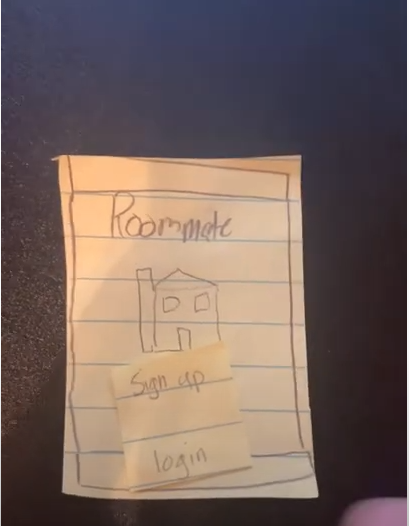 Roommate
Sign up
login